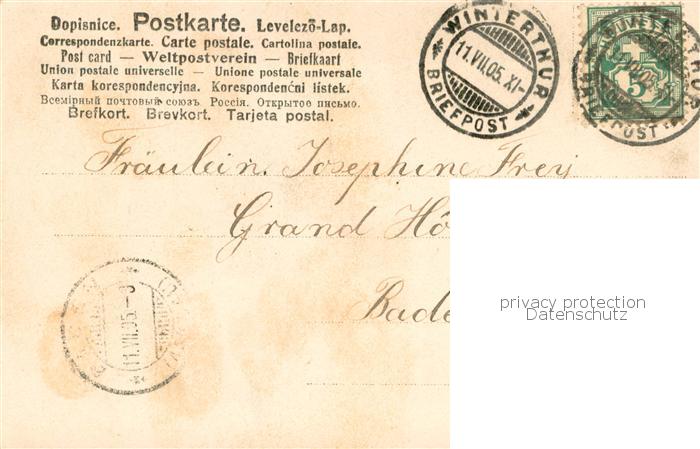 Dopisnice. Postkarte. Levelező-Lap.
Correspondenzkarte. Carte postale. Cartolina postale.
Post card — Weltpostverein — Briefkaart
Union postale universelle — Unione postale universale
Karta korespondencyjna. Korespondenčni listek.
Всемірный почтовый союзъ. Россія. Открытое письмо.
Brefkort. Brevkort. Tarjeta postal.
WINTERTHUR
11.VII.05.XI-
BRIEFPOST
5
BRIEFPOST
Fräulein Josephine Frey
Grand Hô
Bade
11.VII.05.-8
privacy protection
Datenschutz